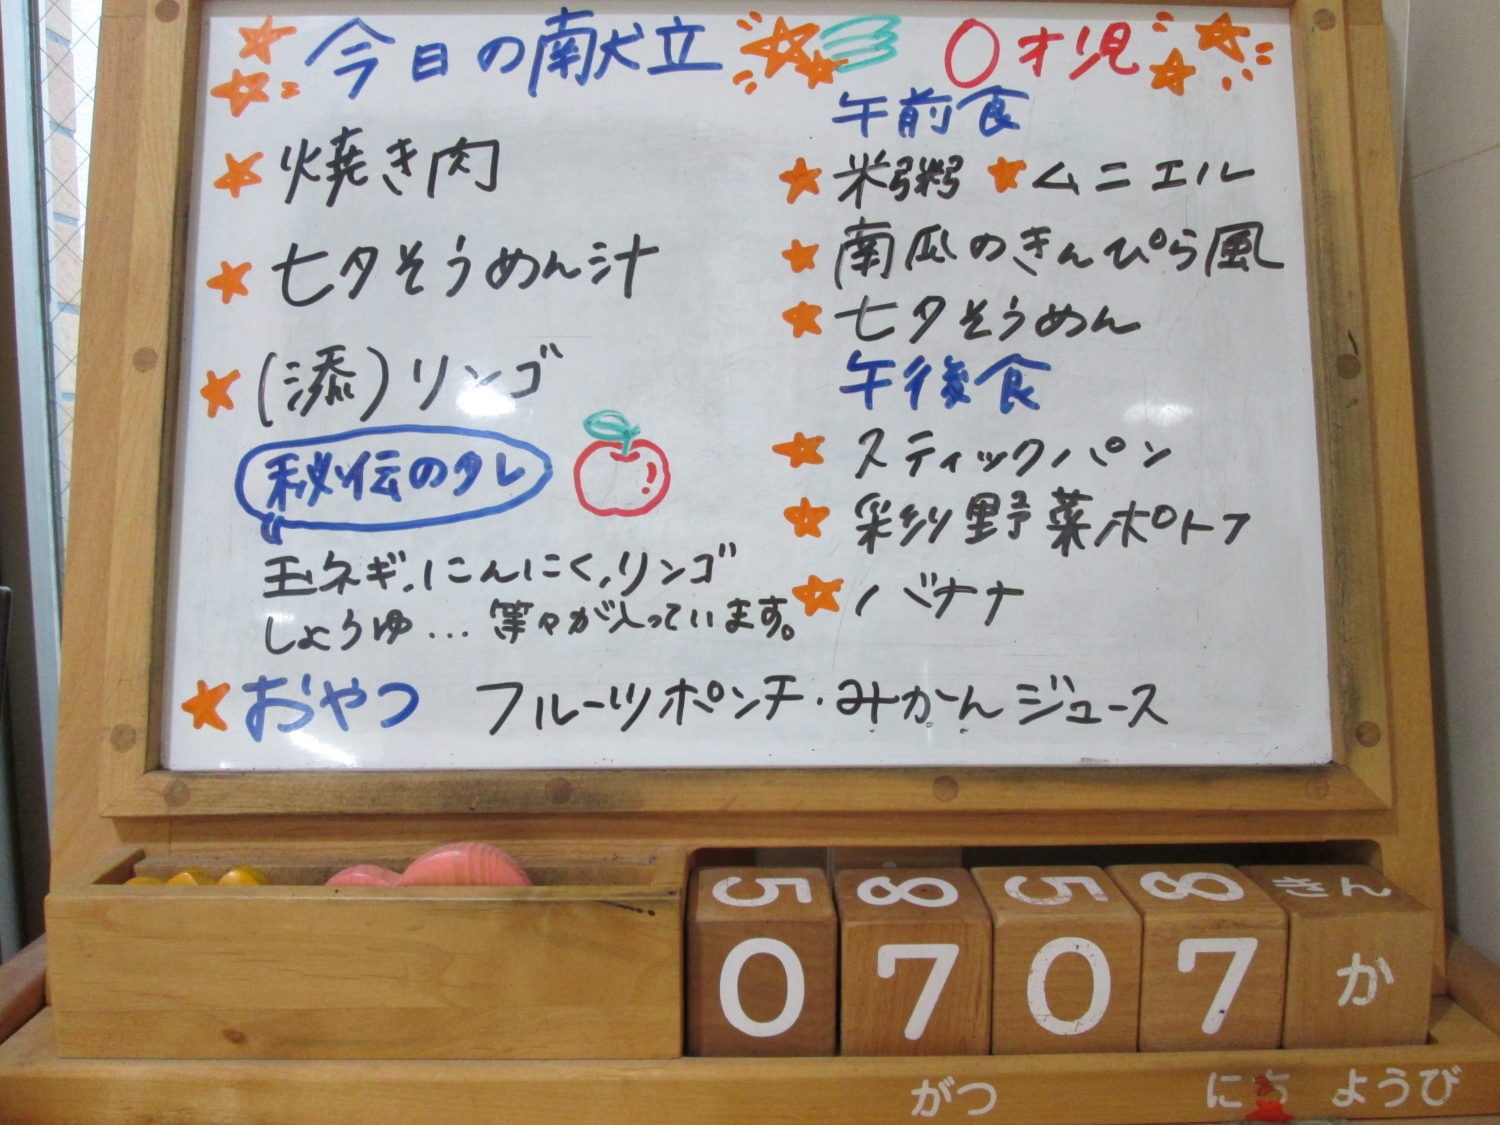 今日の献立
焼き肉
七夕そうめん汁
(添)リンゴ
秘伝のタレ
玉ネギ、にんにく、リンゴ
しょうゆ…等々が入っています。
0才児
午前食
米粥 ムニエル
南瓜のきんぴら風
七夕そうめん
午後食
スティックパン
彩り野菜ポトフ
バナナ
おやつ フルーツポンチ・みかんジュース
5 8 5 8 きん
0 7 0 7 か
がつ にち ようび